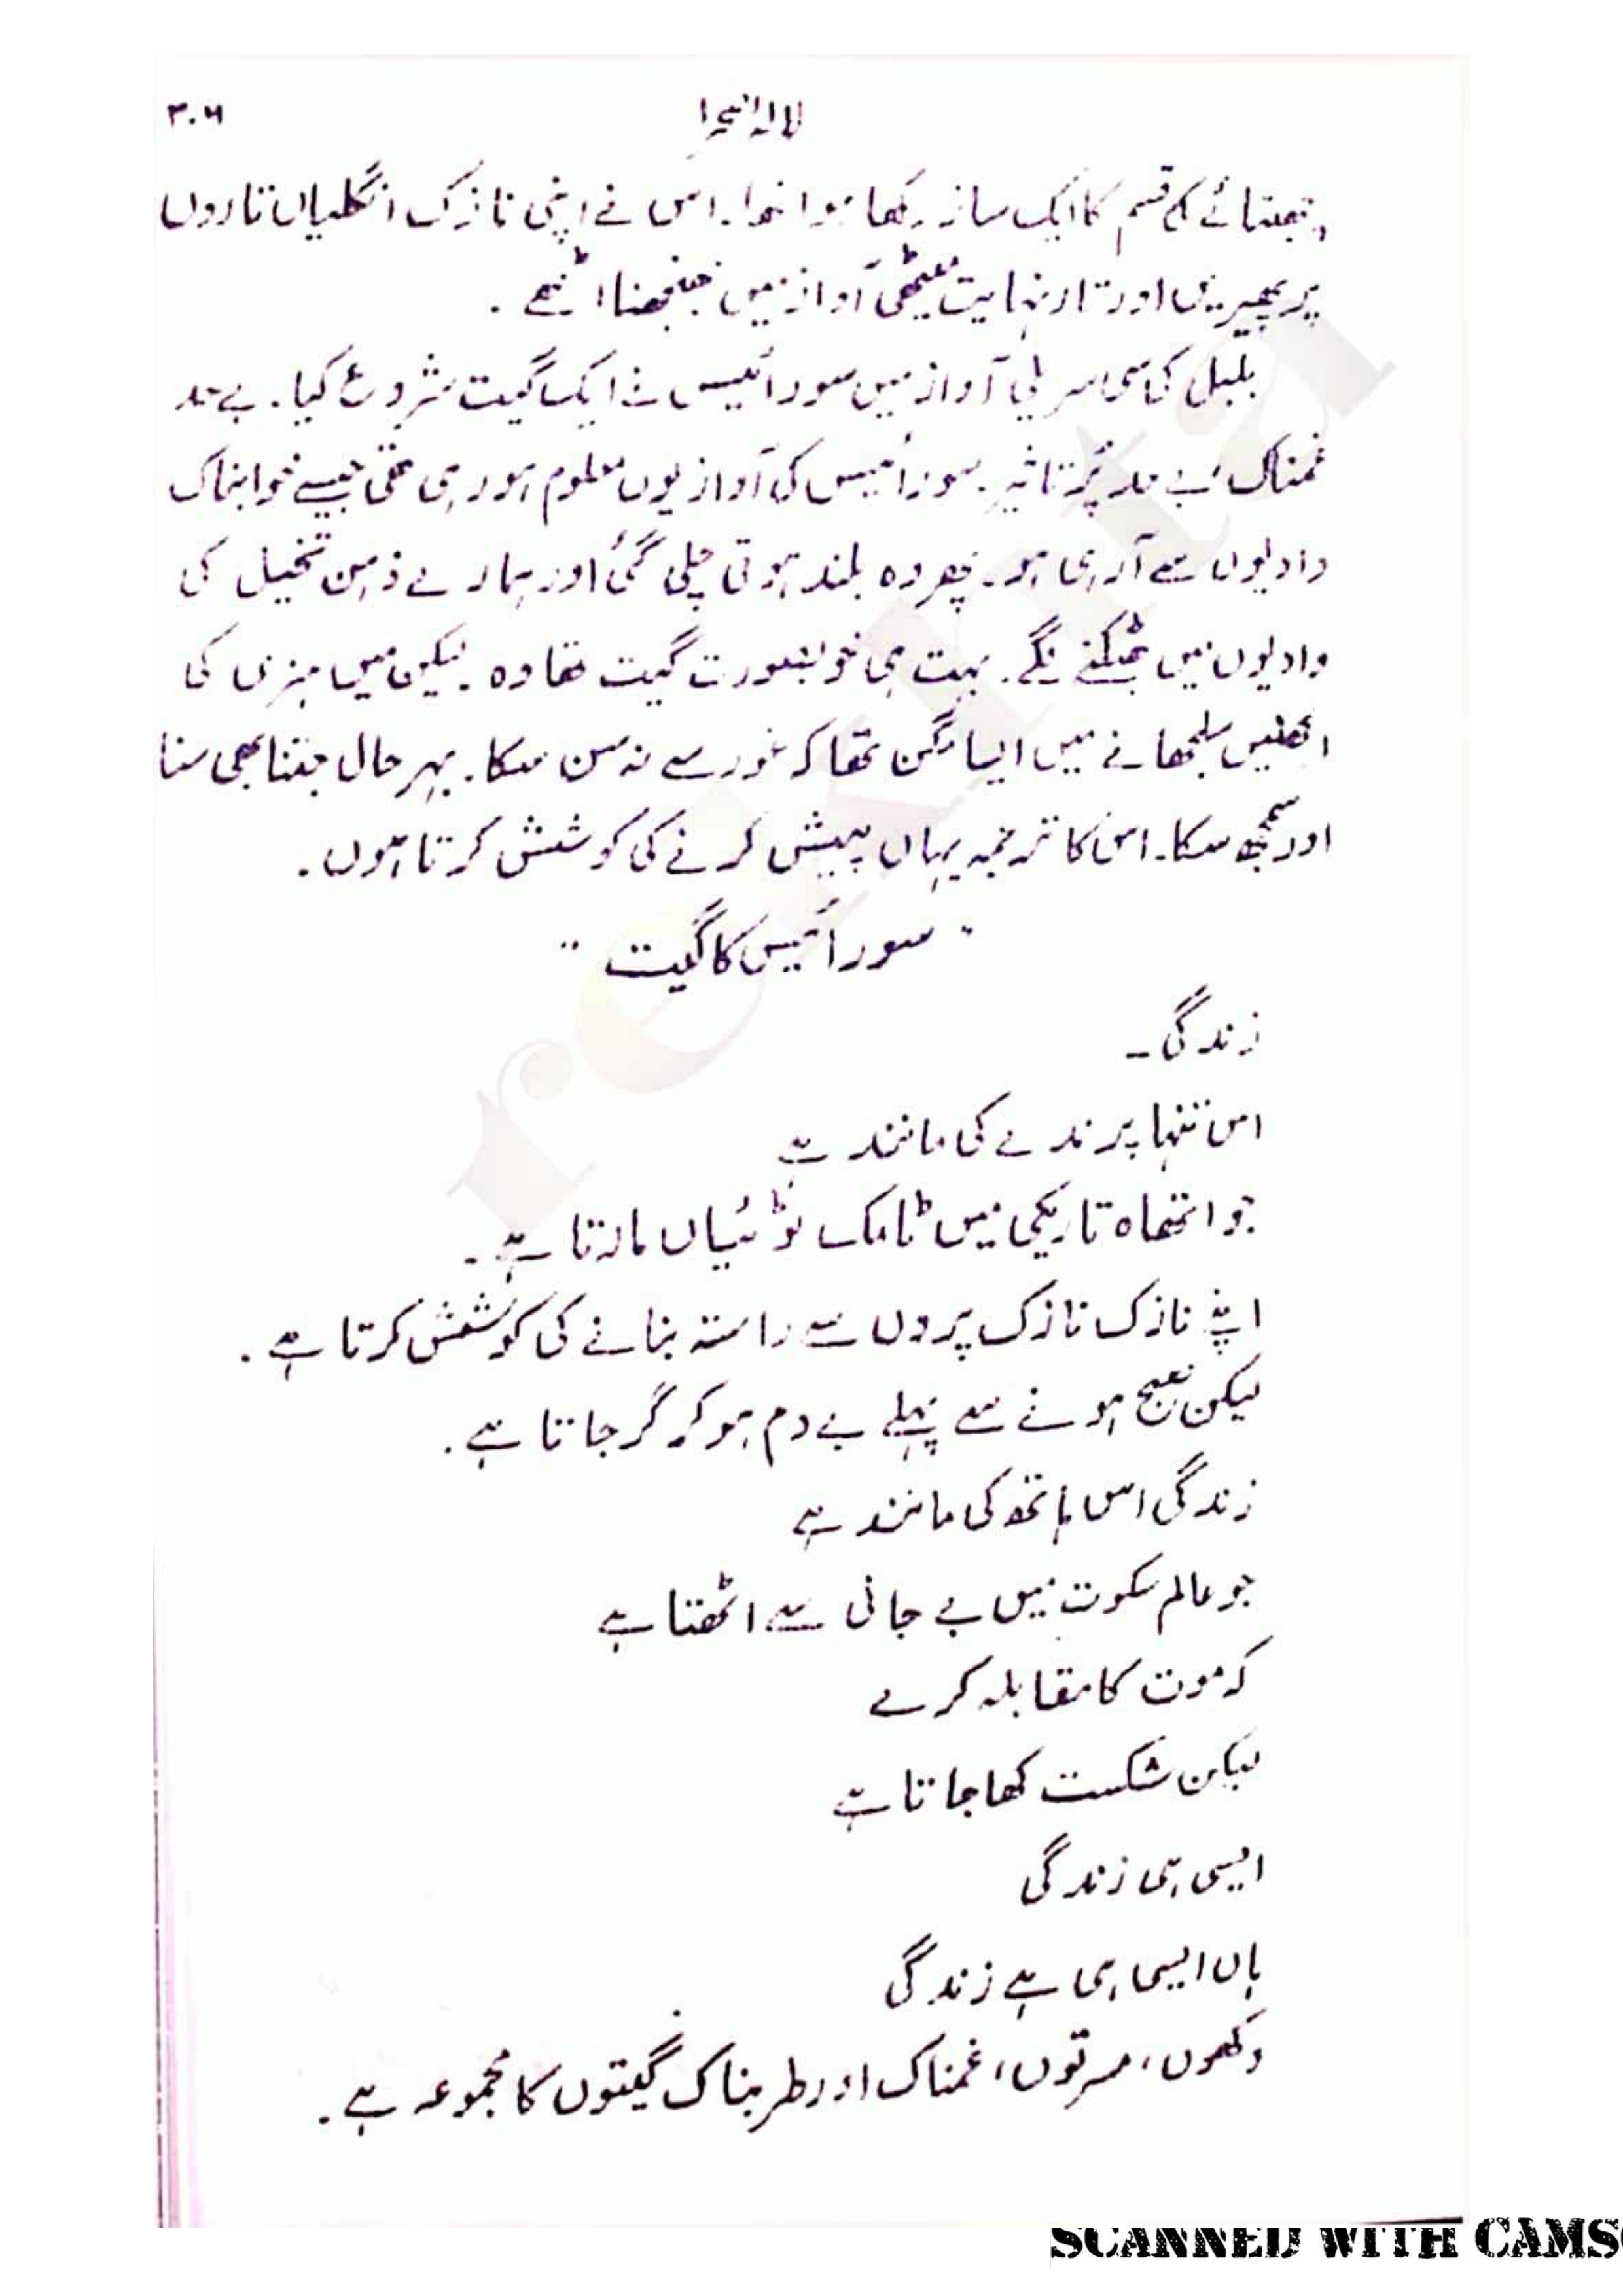 لالۂ صحرا ۳۰۶
قسم کا ایک ساز رکھا ہوا تھا۔ اس نے اپنی نازک انگلیاں تاروں
پر پھیریں اور تار نہایت میٹھی آواز میں جھنجھنا اٹھے ۔
بلبل کی سی سریلی آواز میں سورائیس نے ایک گیت شروع کیا۔ بے حد
غمناک بے حد پُر تاثیر۔ سورائیس کی آواز یوں معلوم ہو رہی تھی جیسے خوابناک
وادیوں سے آرہی ہو۔ پھر وہ بلند ہوتی چلی گئی اور ہمارے ذہن تخیل کی
وادیوں میں بھٹکنے لگے۔ بہت ہی خوبصورت گیت تھا وہ۔ لیکن میں ہنری کی
الجھنیں سلجھانے میں ایسا مگن تھا کہ غور سے نہ سن سکا۔ بہر حال جتنا بھی سنا
اور سمجھ سکا۔ اس کا ترجمہ یہاں پیش کرنے کی کوشش کرتا ہوں۔
"سورائیس کا گیت"
زندگی ـ
اس تنہا پرندے کی مانند ہے
جو اتھاہ تاریکی میں ٹامک ٹوئیاں مارتا ہے ۔
اپنے نازک نازک پروں سے راستہ بنانے کی کوشش کرتا ہے ۔
لیکن صبح ہونے سے پہلے بے دم ہو کر گر جاتا ہے ۔
زندگی اس ہاتھ کی مانند ہے
جو عالم سکوت میں بے جانی سے اٹھتا ہے
کہ موت کا مقابلہ کرے
لیکن شکست کھا جاتا ہے
ایسی ہی زندگی
ہاں ایسی ہی ہے زندگی
دکھوں، مسرتوں، غمناک اور طربناک گیتوں کا مجموعہ ہے ۔
rekhta
SCANNED WITH CAMS